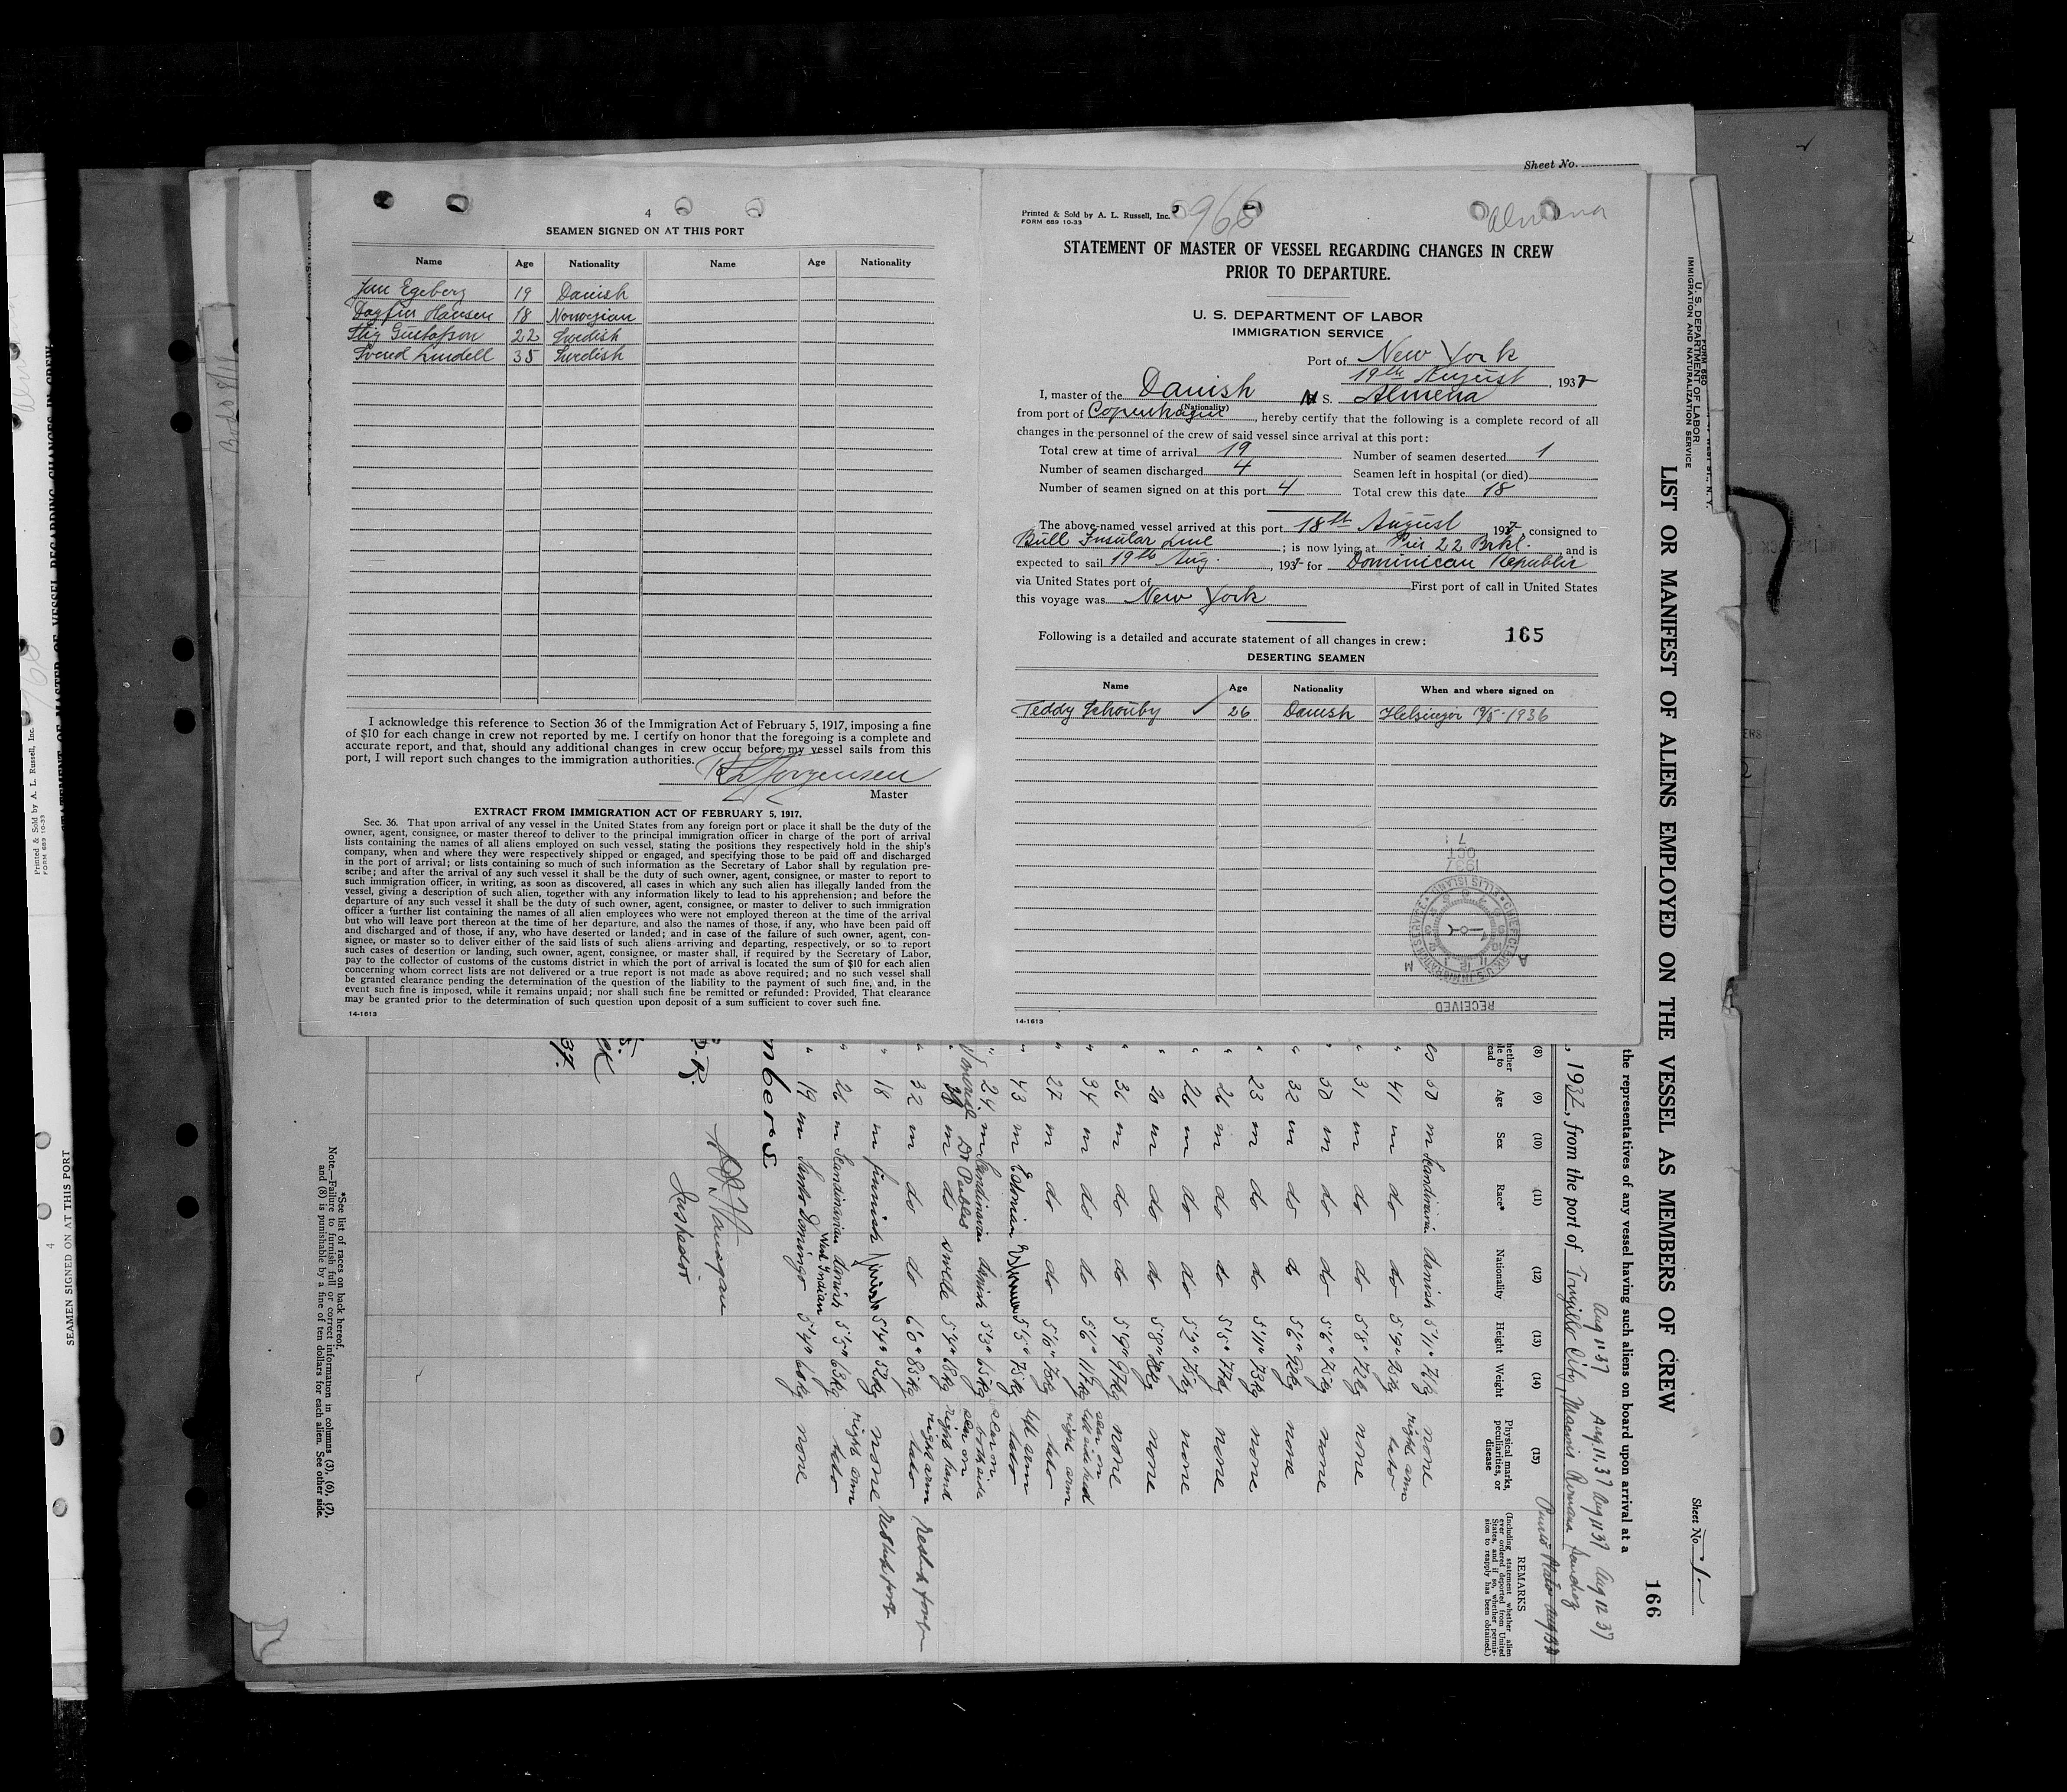 Sheet No.
4
SEAMEN SIGNED ON AT THIS PORT
Name Age Nationality Name Age Nationality
Jan Egeberg 19 Danish
Dagfin Hansen 18 Norwegian
Stig Gustafson 22 Swedish
Svend Lindell 35 Swedish
I acknowledge this reference to Section 36 of the Immigration Act of February 5, 1917, imposing a fine
of $10 for each change in crew not reported by me. I certify on honor that the foregoing is a complete and
accurate report, and that, should any additional changes in crew occur before my vessel sails from this
port, I will report such changes to the immigration authorities.
Jorgensen
Master
EXTRACT FROM IMMIGRATION ACT OF FEBRUARY 5, 1917.
Sec. 36. That upon arrival of any vessel in the United States from any foreign port or place it shall be the duty of the
owner, agent, consignee, or master thereof to deliver to the principal immigration officer in charge of the port of arrival
lists containing the names of all aliens employed on such vessel, stating the positions they respectively hold in the ship's
company, when and where they were respectively shipped or engaged, and specifying those to be paid off and discharged
in the port of arrival; or lists containing so much of such information as the Secretary of Labor shall by regulation pre-
scribe; and after the arrival of any such vessel it shall be the duty of such owner, agent, consignee, or master to report to
such immigration officer, in writing, as soon as discovered, all cases in which any such alien has illegally landed from the
vessel, giving a description of such alien, together with any information likely to lead to his apprehension; and before the
departure of any such vessel it shall be the duty of such owner, agent, consignee, or master to deliver to such immigration
officer a further list containing the names of all alien employees who were not employed thereon at the time of the arrival
but who will leave port thereon at the time of her departure, and also the names of those, if any, who have been paid off
and discharged and of those, if any, who have deserted or landed; and in case of the failure of such owner, agent, con-
signee, or master so to deliver either of the said lists of such aliens arriving and departing, respectively, or so to report
such cases of desertion or landing, such owner, agent, consignee, or master shall, if required by the Secretary of Labor,
pay to the collector of customs of the customs district in which the port of arrival is located the sum of $10 for each alien
concerning whom correct lists are not delivered or a true report is not made as above required; and no such vessel shall
be granted clearance pending the determination of the question of the liability to the payment of such fine, and, in the
event such fine is imposed, while it remains unpaid; nor shall such fine be remitted or refunded: Provided, That clearance
may be granted prior to the determination of such question upon deposit of a sum sufficient to cover such fine.
14-1613
Printed & Sold by A. L. Russell, Inc.
FORM 689 10-33
968
Almena
STATEMENT OF MASTER OF VESSEL REGARDING CHANGES IN CREW
PRIOR TO DEPARTURE.
U. S. DEPARTMENT OF LABOR
IMMIGRATION SERVICE
Port of New York
19th August, 1937
I, master of the Danish M S. Almena
(Nationality)
from port of Copenhagen, hereby certify that the following is a complete record of all
changes in the personnel of the crew of said vessel since arrival at this port:
Total crew at time of arrival 19 Number of seamen deserted 1
Number of seamen discharged 4 Seamen left in hospital (or died)
Number of seamen signed on at this port 4 Total crew this date 18
The above-named vessel arrived at this port 18th August 1937, consigned to
Bull Insular Line; is now lying at Pier 22 Brkl. and is
expected to sail 19th Aug., 1937 for Dominican Republic
via United States port of First port of call in United States
this voyage was New York
Following is a detailed and accurate statement of all changes in crew: 165
DESERTING SEAMEN
Name Age Nationality When and where signed on
Teddy Schouby 26 Danish Helsingør 19/5-1936
RECEIVED
CHIEF CLERK U.S. IMMIGRATION SERVICE
ELLIS ISLAND
1937
OCT
7
14-1613
U. S. DEPARTMENT OF LABOR
IMMIGRATION AND NATURALIZATION SERVICE
LIST OR MANIFEST OF ALIENS EMPLOYED ON THE VESSEL AS MEMBERS OF CREW
Sheet No. 1
166
the representatives of any vessel having such aliens on board upon arrival at a
Aug 11 37 Aug 11, 37 Aug 11 37 Aug 12 37
, 1937, from the port of Trujillo City, Macoris Romana
(8) (9) (10) (11) (12) (13) (14) (15) REMARKS
Age Sex Race* Nationality Height Weight Physical marks, peculiarities, or disease
(Including statement whether alien ever ordered deported from United States, and if so, whether permission to reapply has been obtained.)
50 m Scandinavian danish 5'11" none
41 m do do 5'9" right arm tato
31 m do do 5'8" 72kg none
50 m do do 5'6" 75kg none
32 m do do 5'6" none
23 m do do 5'11" 73kg none
26 m do do 5'5" none
26 m do do 5'2" 75kg none
20 m do do 5'8" none
36 m do do 5'9" 97kg none
34 m do do 5'6" 117kg scar on left side head
27 m do do 5'6" right arm tato
43 m Estonian 5'5" 75kg left arm tato
24 m Scandinavian danish 5'3" 65kg
m do swede 5'4" 68kg scar on right hand
32 m do do 6'0" 85kg right arm tato
18 m finnish 5'4" 52kg none
26 m Scandinavian danish 5'5" 63kg right arm tato
19 m Santo Domingo West Indian 5'4" none
Inspector
*See list of races on back hereof.
Note.—Failure to furnish full or correct information in columns (3), (6), (7),
and (8) is punishable by a fine of ten dollars for each alien. See other side.
Printed & Sold by A. L. Russell, Inc.
FORM 689 10-33
4
SEAMEN SIGNED ON AT THIS PORT